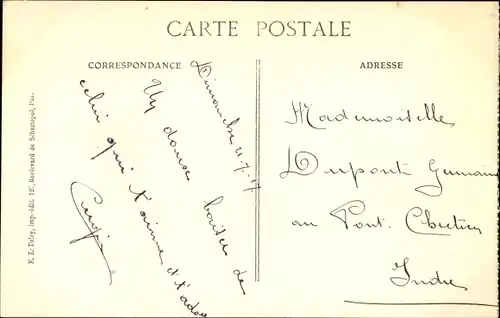 CARTE POSTALE
CORRESPONDANCE
ADRESSE
Dimanche 21.7.17
Un doux baiser de
celui qui t'aime et t'adore
Mademoiselle
Dupont Germaine
au Pont. Chretien
Indre
E. L. Deley, imp.-édit. 127, Boulevard de Sébastopol, Paris.